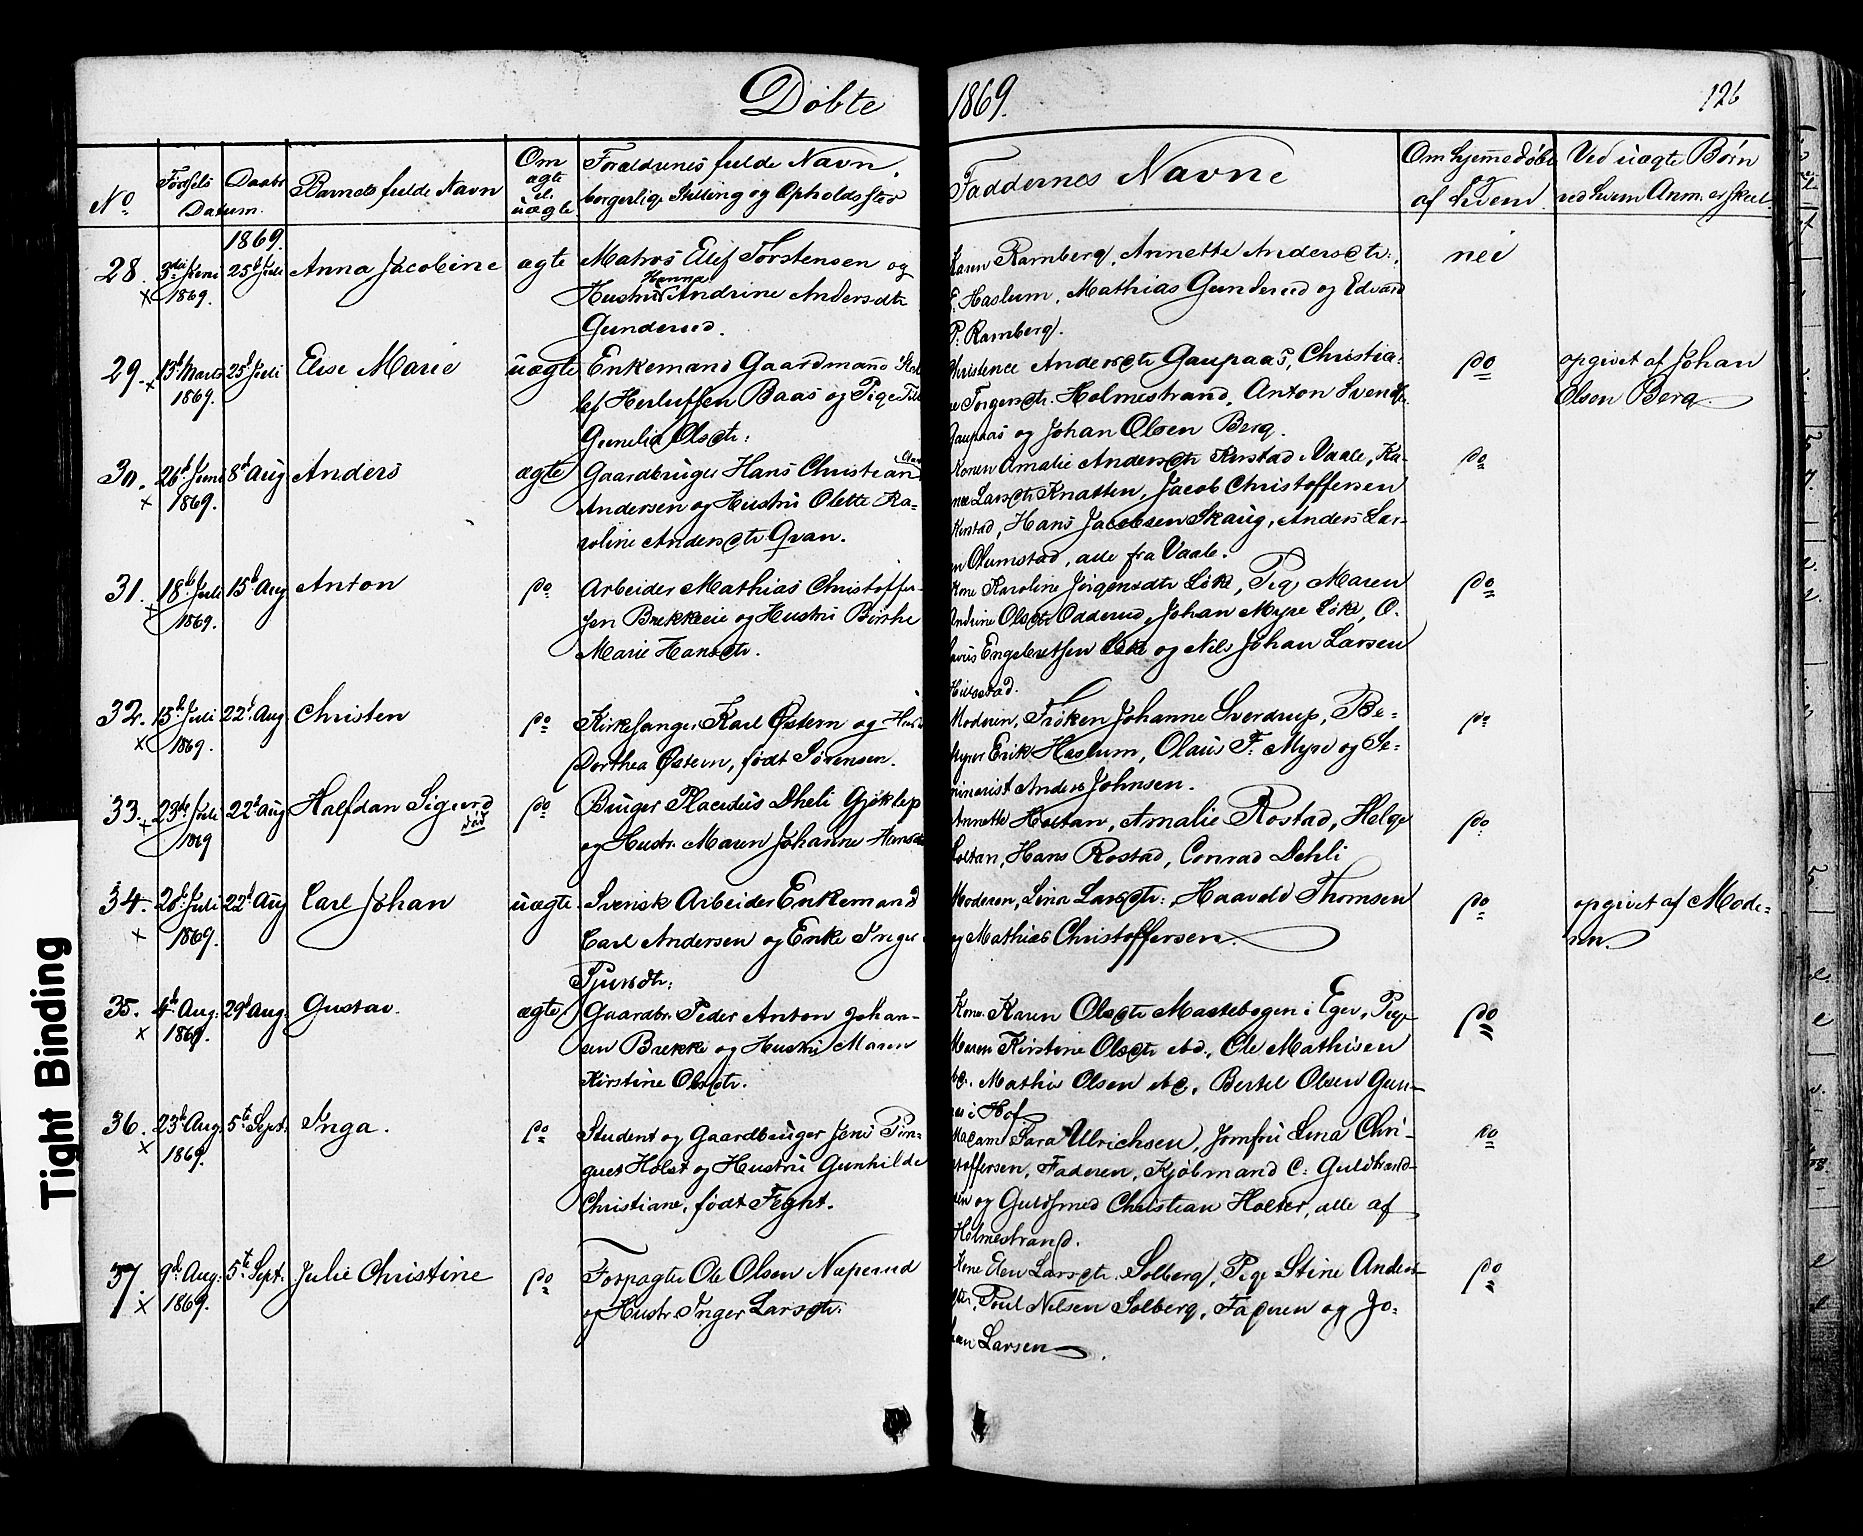 Døbte 1869. 126
No Fødsels Daabs Datum. Barnets fulde Navn Om ægte el. uægte Forældrenes fulde Navn, borgerlige Stilling og Opholdssted Faddernes Navne Om hjemmedøbt af hvem Ved uægte Børn ved hvem Anm. er skeet.
1869.
28. 3die Juni 1869. 25d Juli Anna Jacobine ægte Matros Elef Torstensen og
Hustru Hanna Andrine Andersdtr
Gunderud.
Karen Ramberg, Annette Andersdtr:,
F. Haslum, Mathias Gunderud og Edvard
P. Ramberg.
nei
29. 13d Marts 1869. 25d Juli Elise Marie uægte Enkemand Gaardmand
Herlufsen Baas og Pige
Gunelia Olsdtr:
Christence Andersdtr Gaupaas, Christia-
ne Torgersdtr. Holmestrand, Anton Svends.
Gaupaas og Johan Olsen Berg.
do
opgivet af Johan
Olsen Berg
30. 26d Juni 1869. 8d Aug Anders ægte Gaardbruger Hans Christian
Andersen og Hustru Olette Ka-
roline Andersdtr Qvan.
Konen Amalie Andersdtr Kirstad i Vaale, Ka-
Larsdtr Knatten, Jacob Christoffersen
Kirstad, Hans Jacobsen Skaug, Anders Lar-
en Olumstad, alle fra Vaale.
do
31. 18de Juli 1869. 15d Aug Anton do Arbeider Mathias Christoffer-
sen Brekkeeie og Hustru Birthe
Marie Hansdtr.
Kone Karoline Jørgensdtr Løke, Pige Maren
Andrine Olsdtr Odderud, Johan Myre Løke, O-
lavus Engebretsen Løke og Nils Johan Larsen
Hillestad.
do
32. 13de Juli 1869. 22d Aug Christen do Kirkesanger Karl Østern og
Dorthea Østern, født Sørensen.
Moderen, Frøken Johanne Sverdrup, Be-
styrer Erik Haslum, Olaus F. Myre og Se-
minarist Anders Johnsen.
do
33. 23de Juli 1869 22d Aug Halfdan Sigurd død do Bruger Placidus Dheli Gjøklep
og Hustr. Maren Johanne
Annette Holtan, Amalie Rostad, Helge
Holtan, Hans Rostad, Conrad Dehli
do
34. 28d Juli 1869. 22d Aug Carl Johan uægte Svensk Arbeider Enkemand
Carl Andersen og Enke Inger
Sjursdtr:
Moderen, Lina Larsdtr:, Haavald Thomsen
og Mathias Christoffersen.
do
opgivet af Mode-
ren.
35. 4d Aug: 1869. 29d Aug: Gustav. ægte Gaardbr. Peder Anton Johan-
sen Brekke og Hustru Maren
Kirstine Olsdtr.
Kone Karen Olsdtr Mastebogen i Eger, Pige
Maren Kirstine Olsdtr ibd., Ole Mathisen
ibd. Mathis Olsen ibd, Bertel Olsen Gun-
i Hof
do
36. 23d Aug 1869. 5te Sept. Inga. do Student og Gaardbruger Jens Pin-
guer Holst og Hustru Gunhilde
Christiane, født Feght.
Madam Sara Ulrichsen, Jomfru Lina Chri-
stoffersen, Faderen, Kjøbmand C: Guldbrand-
sen og Guldsmed Christian Holter, alle af
Holmestrand.
do
37. 9de Aug: 1869. 5te Sept. Julie Christine do Forpagter Ole Olsen Naperud
og Hustr. Inger Larsdtr:
Kone Elen Larsdtr. Solberg, Pige Stine Anders-
dtr, Poul Nilsen Solberg, Faderen og Jo-
han Larsen
do
Tight Binding